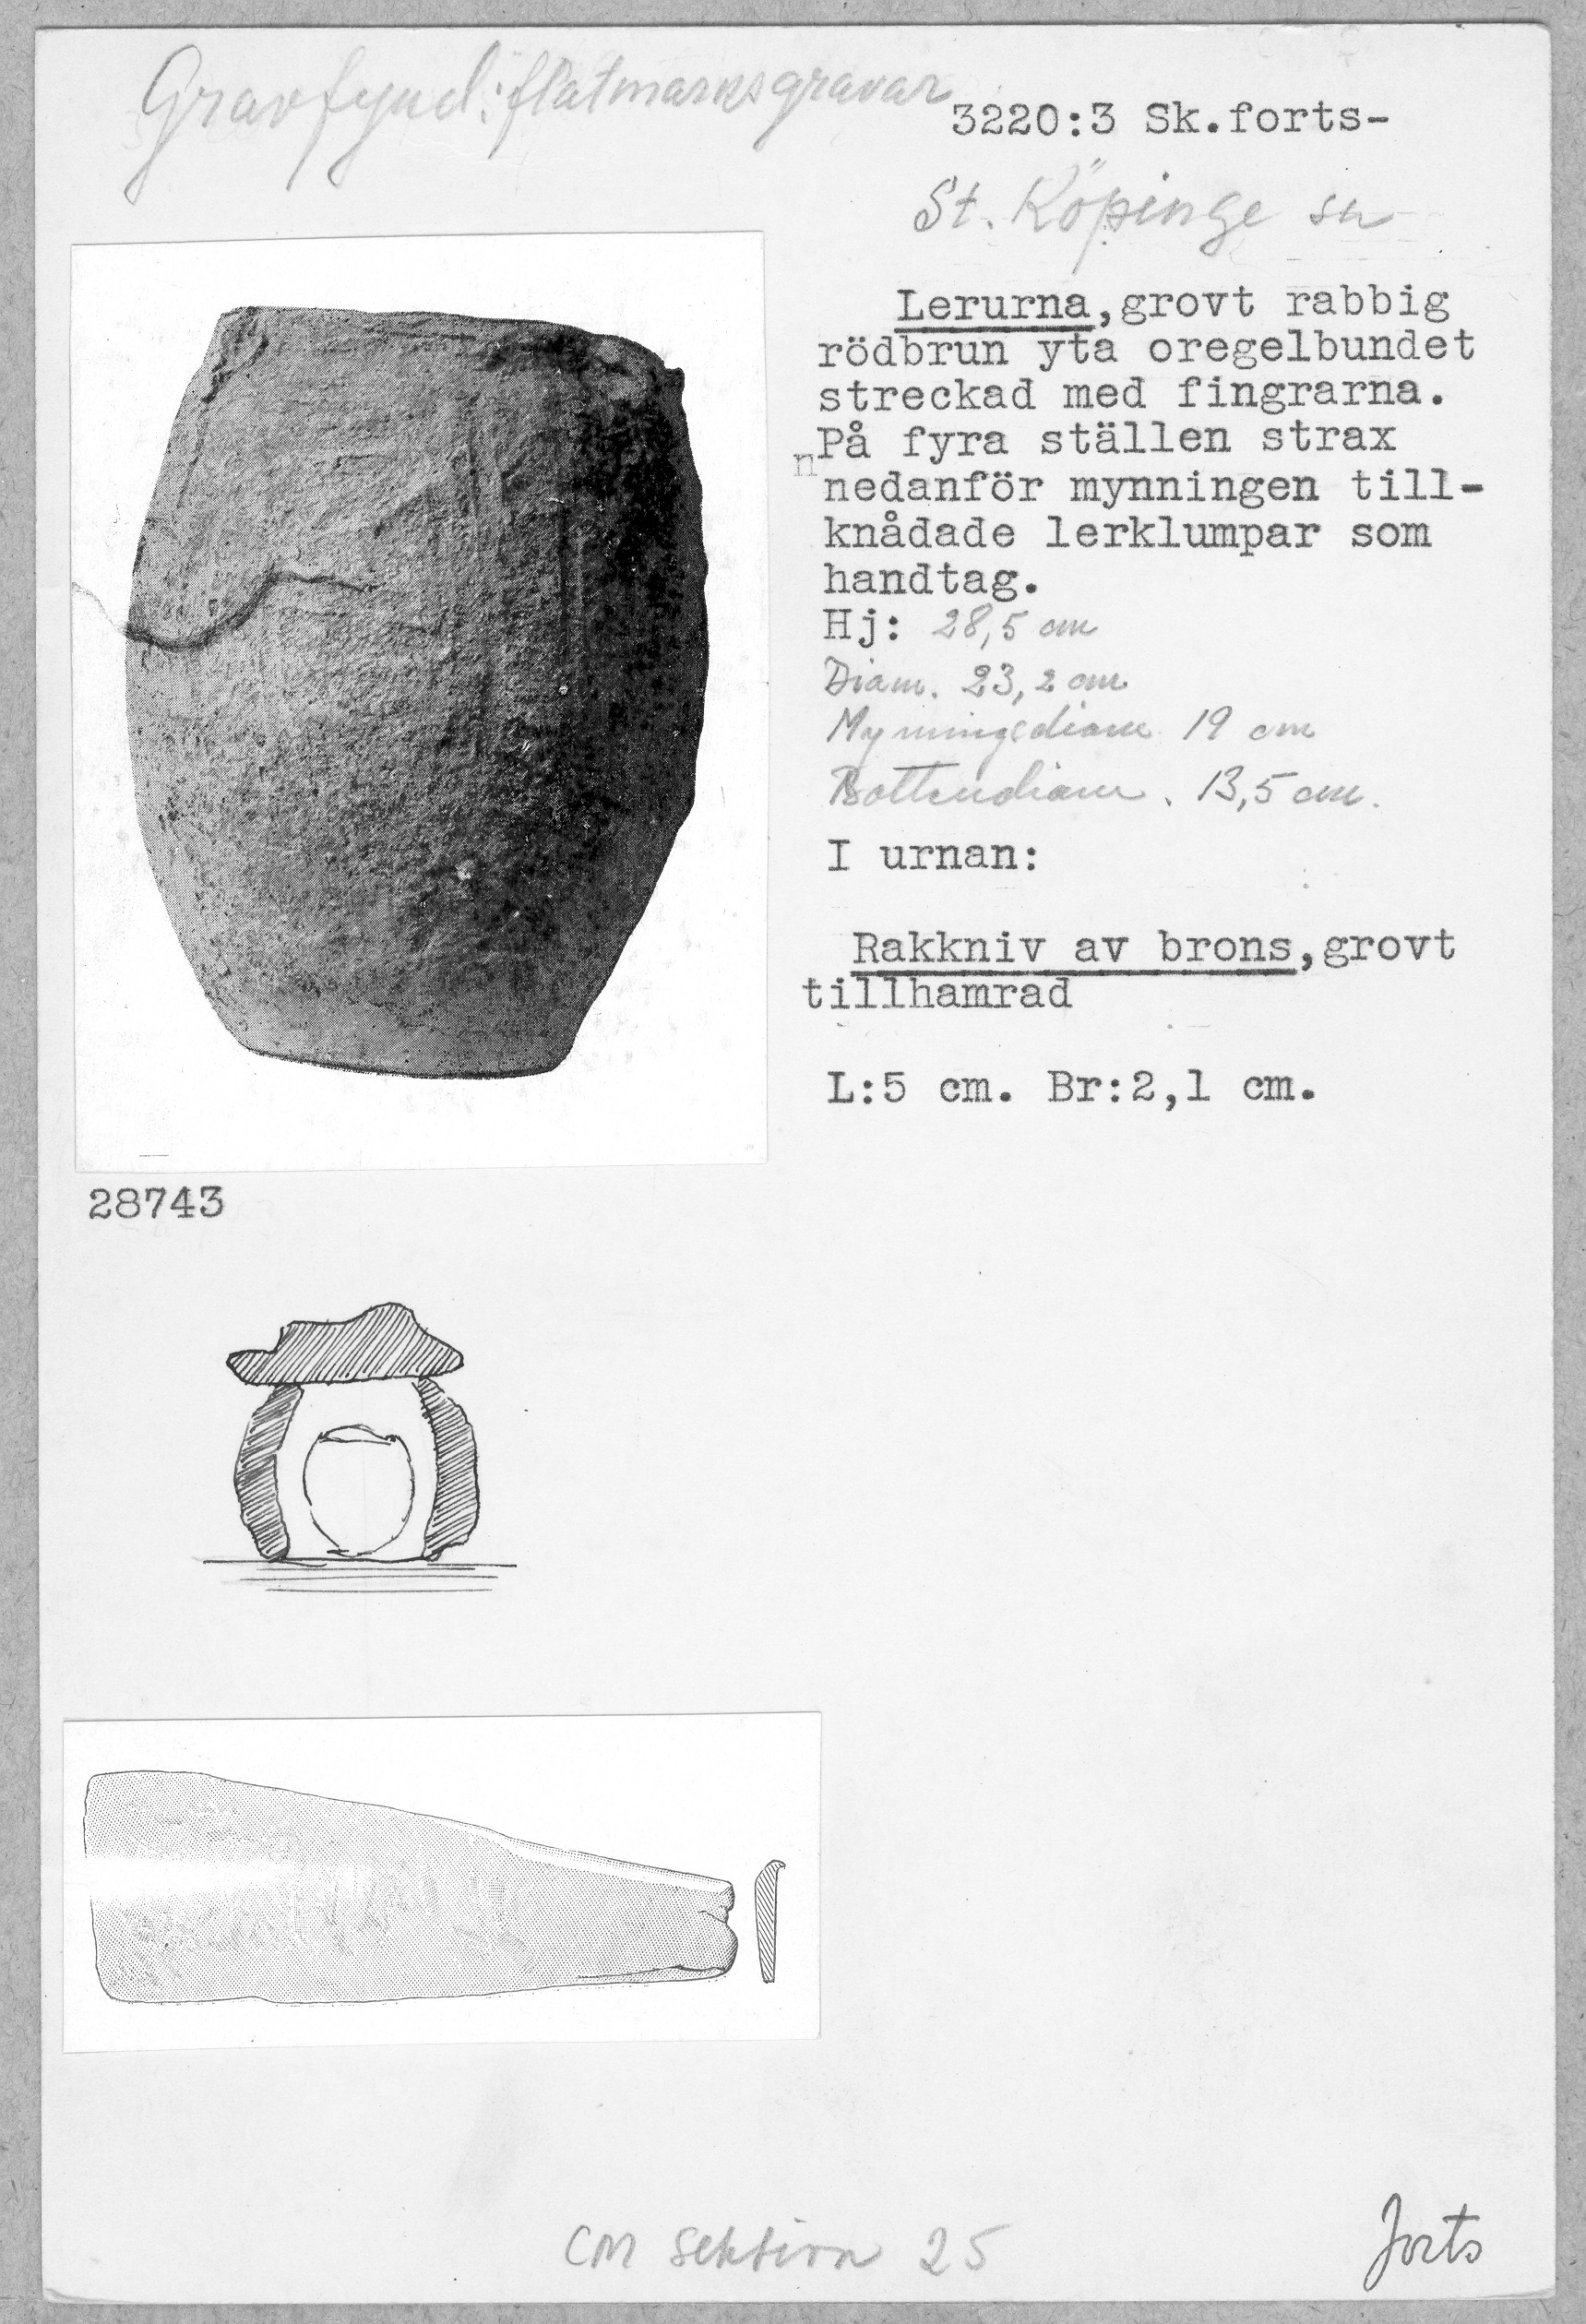 Gravfynd: flatmarksgravar
3220:3 Sk.forts-
St. Köpinge sn
Lerurna, grovt rabbig
rödbrun yta oregelbundet
streckad med fingrarna.
På fyra ställen strax
n
nedanför mynningen till-
knådade lerklumpar som
handtag.
Hj: 28,5 cm
Diam. 23,2 cm
Mynningsdiam 19 cm
Bottendiam. 13,5 cm.
I urnan:
Rakkniv av brons, grovt
tillhamrad
L:5 cm. Br:2,1 cm.
28743
CM Sektion 25
Forts